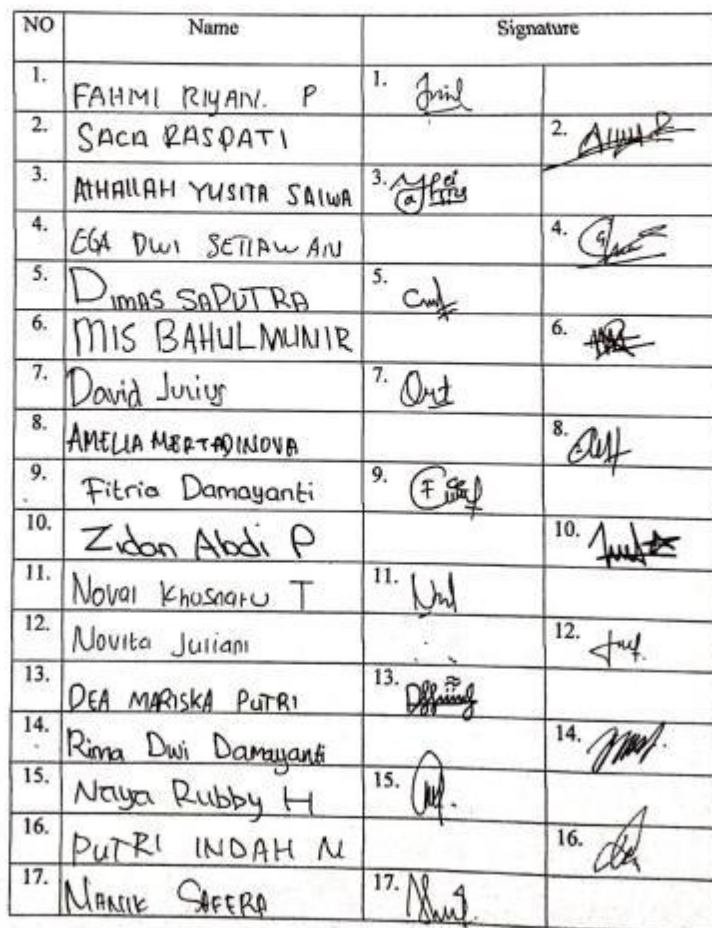 NO Name Signature
1. FAHMI RIYAN. P 1.
2. SACA RASPATI 2.
3. ATHALLAH YUSITA SALWA 3.
4. EGA DWI SETIAWAN 4.
5. DIMAS SAPUTRA 5.
6. MIS BAHUL MUNIR 6.
7. David Julius 7.
8. AMELIA MERTADINOVA 8.
9. Fitria Damayanti 9.
10. Zidan Abdi P 10.
11. Noval Khusnaru T 11.
12. Novita Juliani 12.
13. DEA MARISKA PUTRI 13.
14. Rima Dwi Damayanti 14.
15. Naya Rubby H 15.
16. PUTRI INDAH N 16.
17. MANIK SAFERA 17.